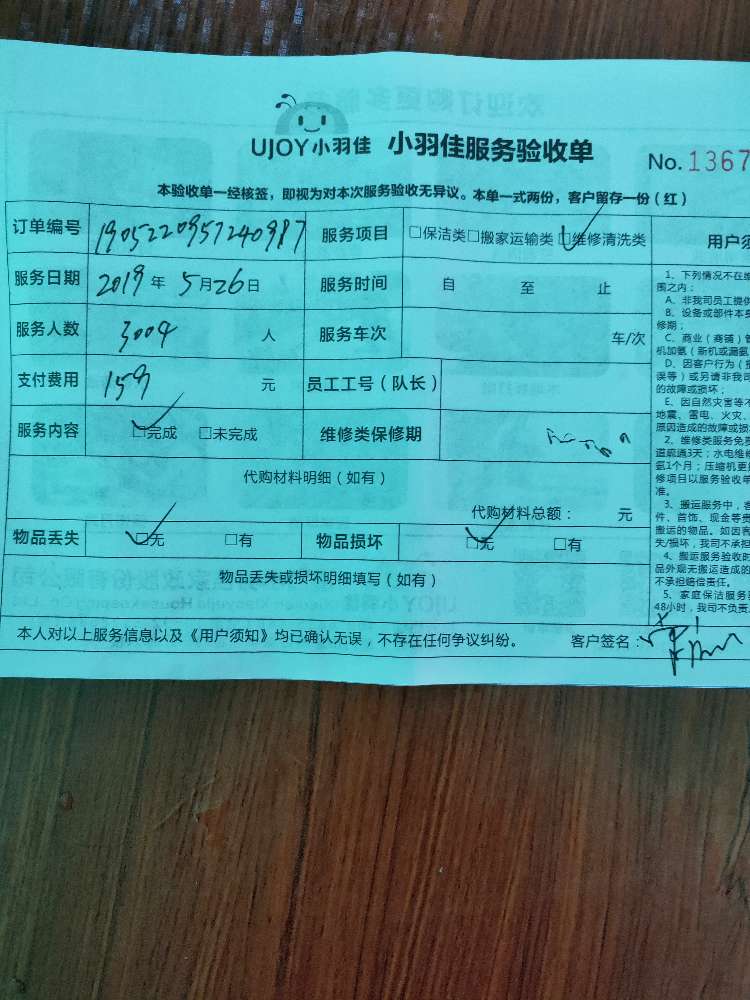 UJOY小羽佳 小羽佳服务验收单 No. 1367
本验收单一经核签，即视为对本次服务验收无异议。本单一式两份，客户留存一份（红）
订单编号 1905220957240987 服务项目 □保洁类□搬家运输类□维修清洗类
服务日期 2019年 5月26日 服务时间 自 至 止
服务人数 3004 人 服务车次 车/次
支付费用 159 元 员工工号（队长）
服务内容 □完成 □未完成 维修类保修期
代购材料明细（如有）
代购材料总额： 元
物品丢失 □无 □有 物品损坏 □无 □有
物品丢失或损坏明细填写（如有）
本人对以上服务信息以及《用户须知》均已确认无误，不存在任何争议纠纷。 客户签名：
用户须
1、下列情况不在维
围之内：
A、非我司员工提供
B、设备或部件本身
修期；
C、商业（商铺）管
机加氨（新机或漏氨
D、因客户行为（
误等）或另请非我司
的故障或损坏；
E、因自然灾害等不
地震、雷电、火灾、
原因造成的故障或损
2、维修类服务免费
道疏通3天；水电维修
氨1个月；压缩机更
修项目以服务验收单
准。
3、搬运服务中，客
件、首饰、现金等贵
搬运的物品。如因客
失/损坏，我司不承担
4、搬运服务验收时
品外观无搬运造成的
不承担赔偿责任。
5、家庭保洁服务
48小时，我司不负责